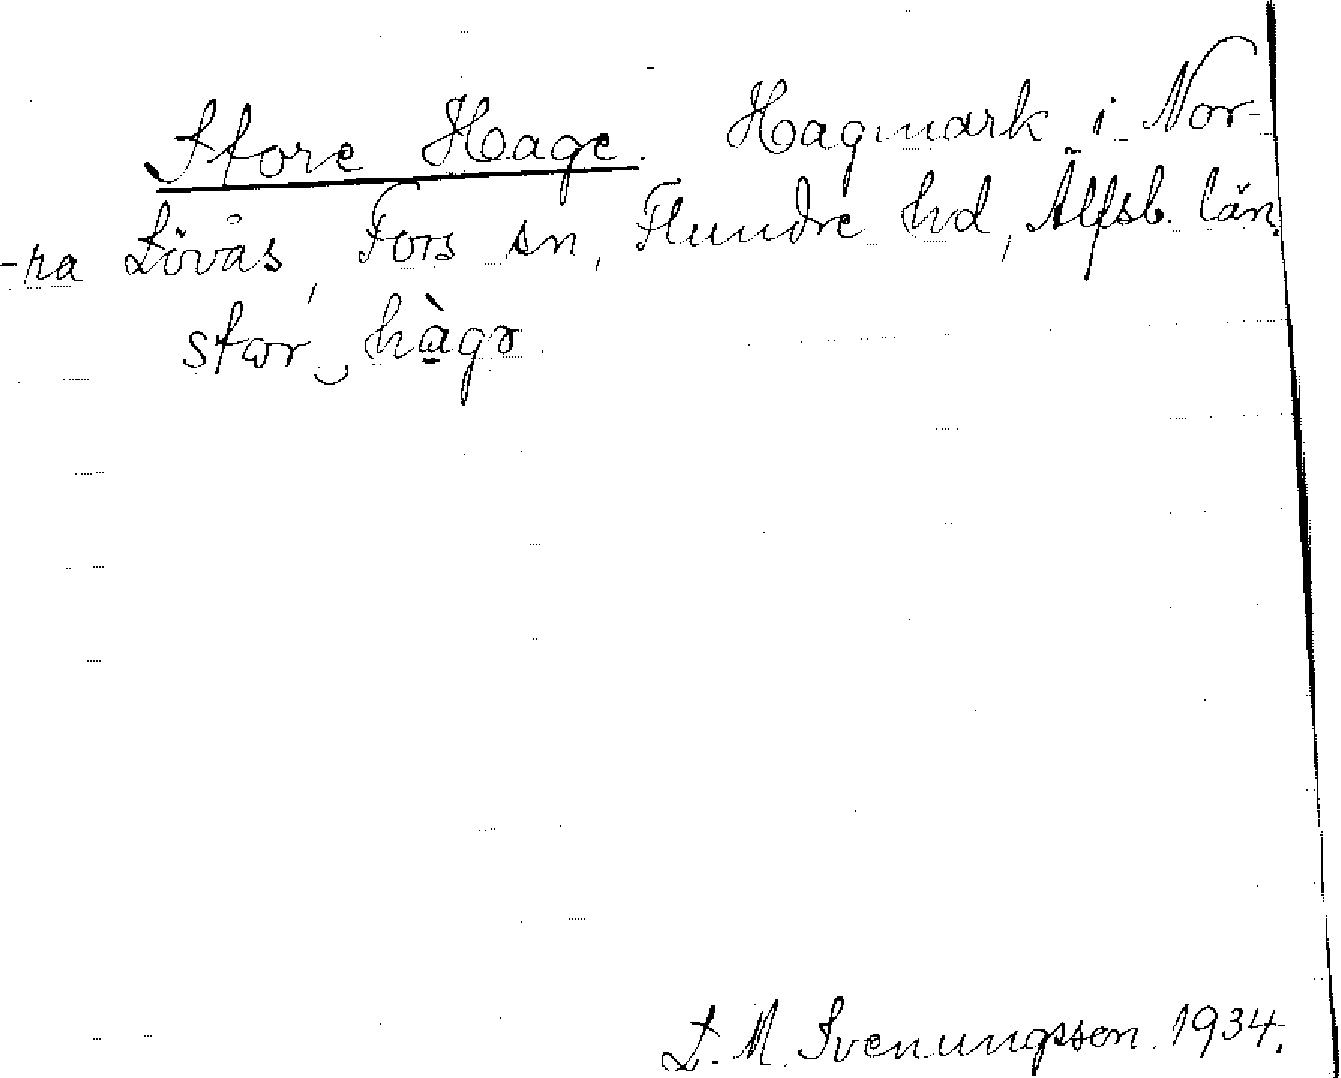 Store Hage. Hagmark i Nor-
-ra Lövås, Fors sn, Flundre hd, Älfsb. län.
stɷr‿hàgə
L. M. Svenungsson. 1934.